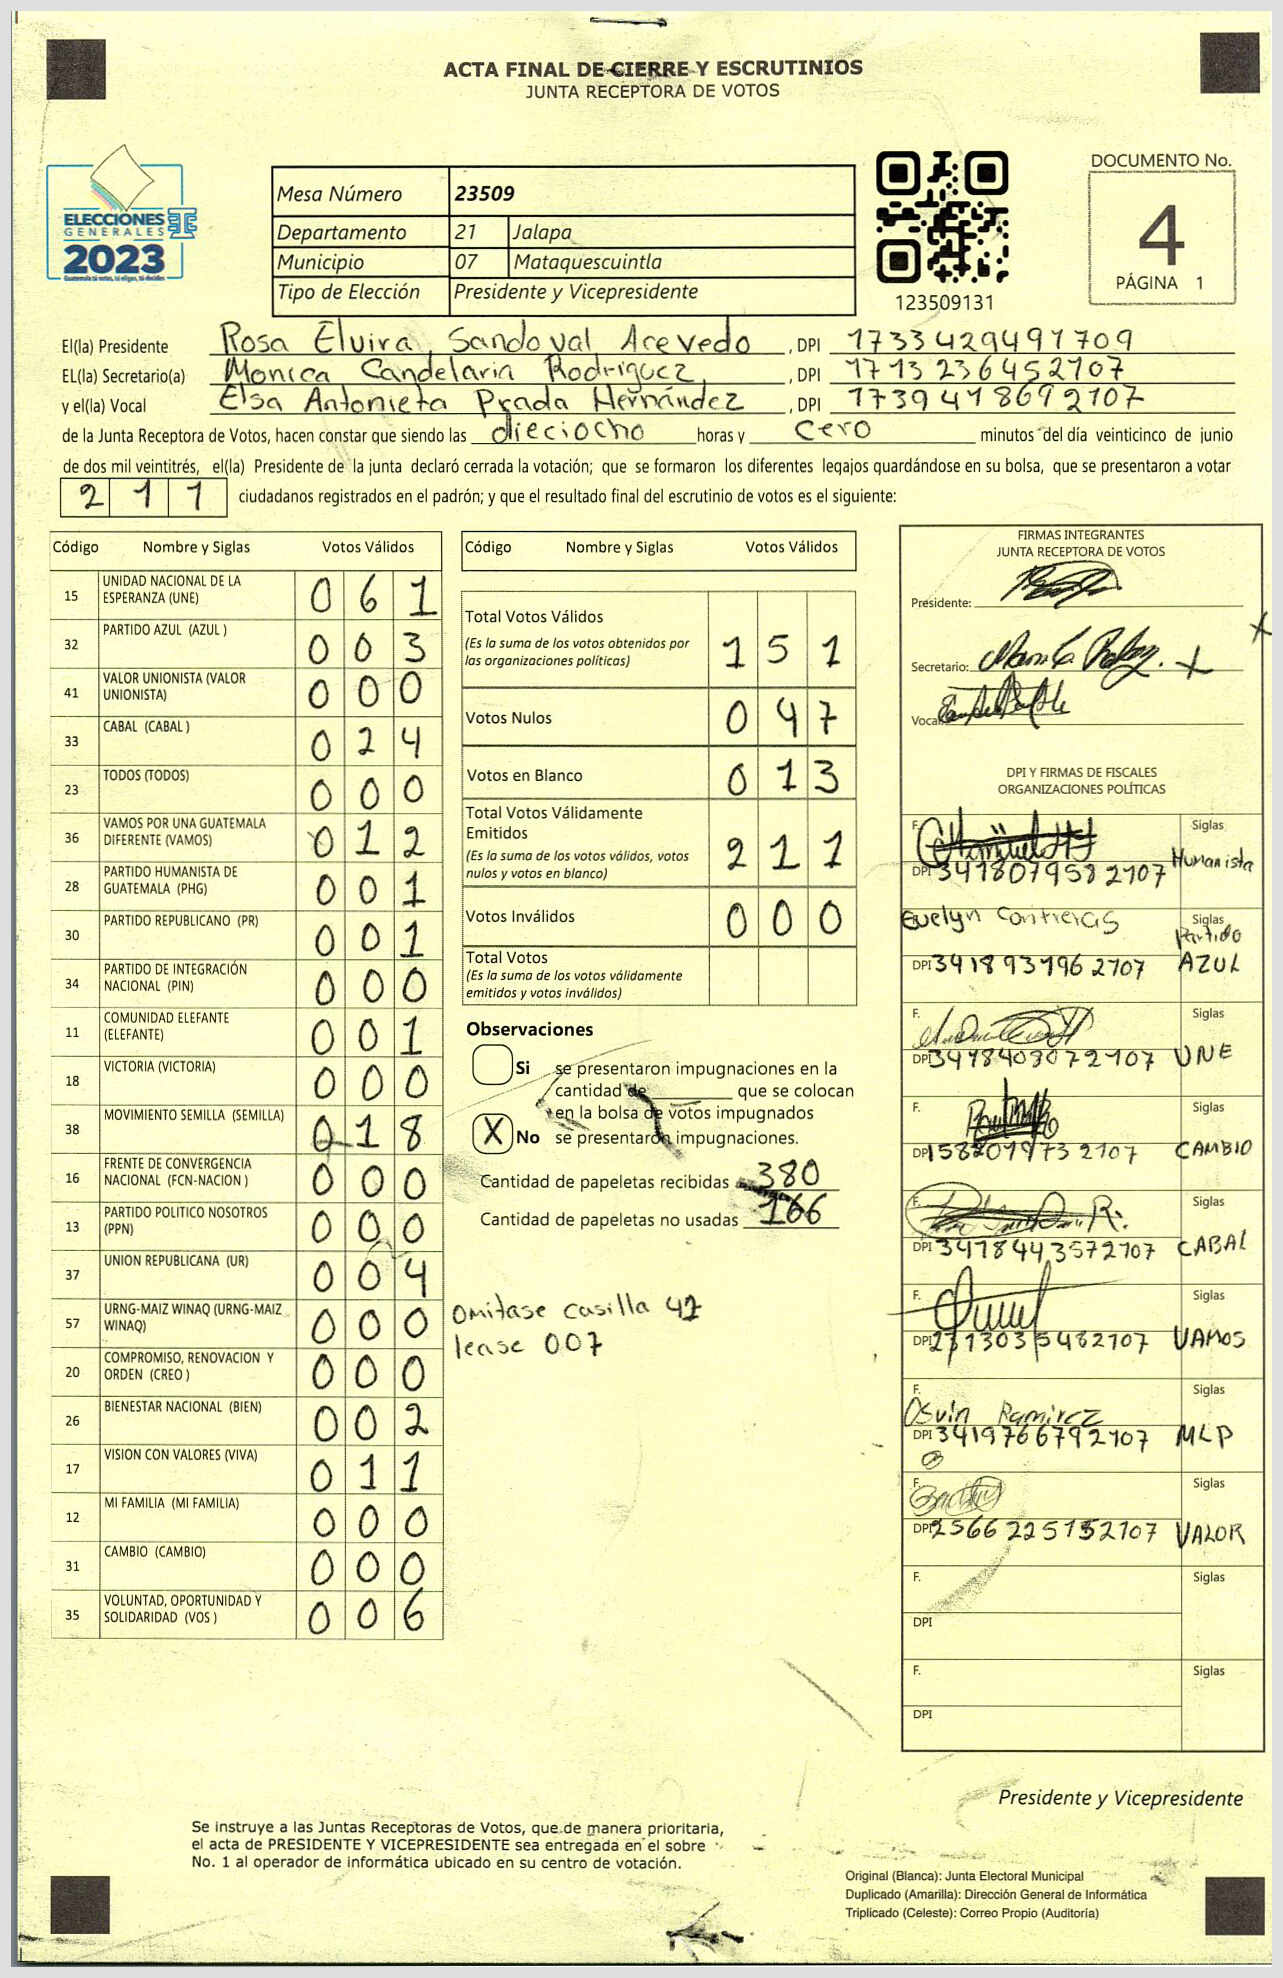 ACTA FINAL DE CIERRE Y ESCRUTINIOS
JUNTA RECEPTORA DE VOTOS
ELECCIONES
GENERALES
2023
Guatemala tú votas, tú eliges, tú decides
Mesa Número 23509
Departamento 21 Jalapa
Municipio 07 Mataquescuintla
Tipo de Elección Presidente y Vicepresidente
123509131
DOCUMENTO No.
4
PÁGINA 1
El(la) Presidente Rosa Elvira Sandoval Acevedo, DPI 1733429491709
EL(la) Secretario(a) Monica Candelaria Rodriguez, DPI 1713236452107
y el(la) Vocal Elsa Antonieta Prada Hernández, DPI 1739418692107
de la Junta Receptora de Votos, hacen constar que siendo las dieciocho horas y cero minutos del día veinticinco de junio
de dos mil veintitrés, el(la) Presidente de la junta declaró cerrada la votación; que se formaron los diferentes legajos guardándose en su bolsa, que se presentaron a votar
211 ciudadanos registrados en el padrón; y que el resultado final del escrutinio de votos es el siguiente:
Código Nombre y Siglas Votos Válidos
15 UNIDAD NACIONAL DE LA ESPERANZA (UNE) 061
32 PARTIDO AZUL (AZUL ) 003
41 VALOR UNIONISTA (VALOR UNIONISTA) 000
33 CABAL (CABAL ) 024
23 TODOS (TODOS) 000
36 VAMOS POR UNA GUATEMALA DIFERENTE (VAMOS) 012
28 PARTIDO HUMANISTA DE GUATEMALA (PHG) 001
30 PARTIDO REPUBLICANO (PR) 001
34 PARTIDO DE INTEGRACIÓN NACIONAL (PIN) 000
11 COMUNIDAD ELEFANTE (ELEFANTE) 001
18 VICTORIA (VICTORIA) 000
38 MOVIMIENTO SEMILLA (SEMILLA) 018
16 FRENTE DE CONVERGENCIA NACIONAL (FCN-NACION ) 000
13 PARTIDO POLITICO NOSOTROS (PPN) 000
37 UNION REPUBLICANA (UR) 004
57 URNG-MAIZ WINAQ (URNG-MAIZ WINAQ) 000
20 COMPROMISO, RENOVACION Y ORDEN (CREO ) 000
26 BIENESTAR NACIONAL (BIEN) 002
17 VISION CON VALORES (VIVA) 011
12 MI FAMILIA (MI FAMILIA) 000
31 CAMBIO (CAMBIO) 000
35 VOLUNTAD, OPORTUNIDAD Y SOLIDARIDAD (VOS ) 006
Código Nombre y Siglas Votos Válidos
Total Votos Válidos 151
(Es la suma de los votos obtenidos por
las organizaciones políticas)
Votos Nulos 047
Votos en Blanco 013
Total Votos Válidamente
Emitidos 211
(Es la suma de los votos válidos, votos
nulos y votos en blanco)
Votos Inválidos 000
Total Votos
(Es la suma de los votos válidamente
emitidos y votos inválidos)
Observaciones
Si se presentaron impugnaciones en la
cantidad de ______ que se colocan
en la bolsa de votos impugnados
X No se presentaron impugnaciones.
Cantidad de papeletas recibidas 380
Cantidad de papeletas no usadas 166
omitase casilla 42
lease 007
FIRMAS INTEGRANTES
JUNTA RECEPTORA DE VOTOS
Presidente:
Secretario:
Vocal
DPI Y FIRMAS DE FISCALES
ORGANIZACIONES POLÍTICAS
F. Siglas
DPI 3418079582107 Humanista
Evelyn Contreras Siglas
Partido
DPI 3418931962107 AZUL
F. Siglas
DPI 3418403072107 UNE
F. Siglas
DPI 1582019732107 CAMBIO
F. Siglas
DPI 3418443572107 CABAL
F. Siglas
DPI 2713035482107 VAMOS
F. Siglas
Osvin Ramirez
DPI 3419766792107 MLP
F. Siglas
DPI 2566225152107 VALOR
F. Siglas
DPI
F. Siglas
DPI
Presidente y Vicepresidente
Se instruye a las Juntas Receptoras de Votos, que de manera prioritaria,
el acta de PRESIDENTE Y VICEPRESIDENTE sea entregada en el sobre
No. 1 al operador de informática ubicado en su centro de votación.
Original (Blanca): Junta Electoral Municipal
Duplicado (Amarilla): Dirección General de Informática
Triplicado (Celeste): Correo Propio (Auditoría)